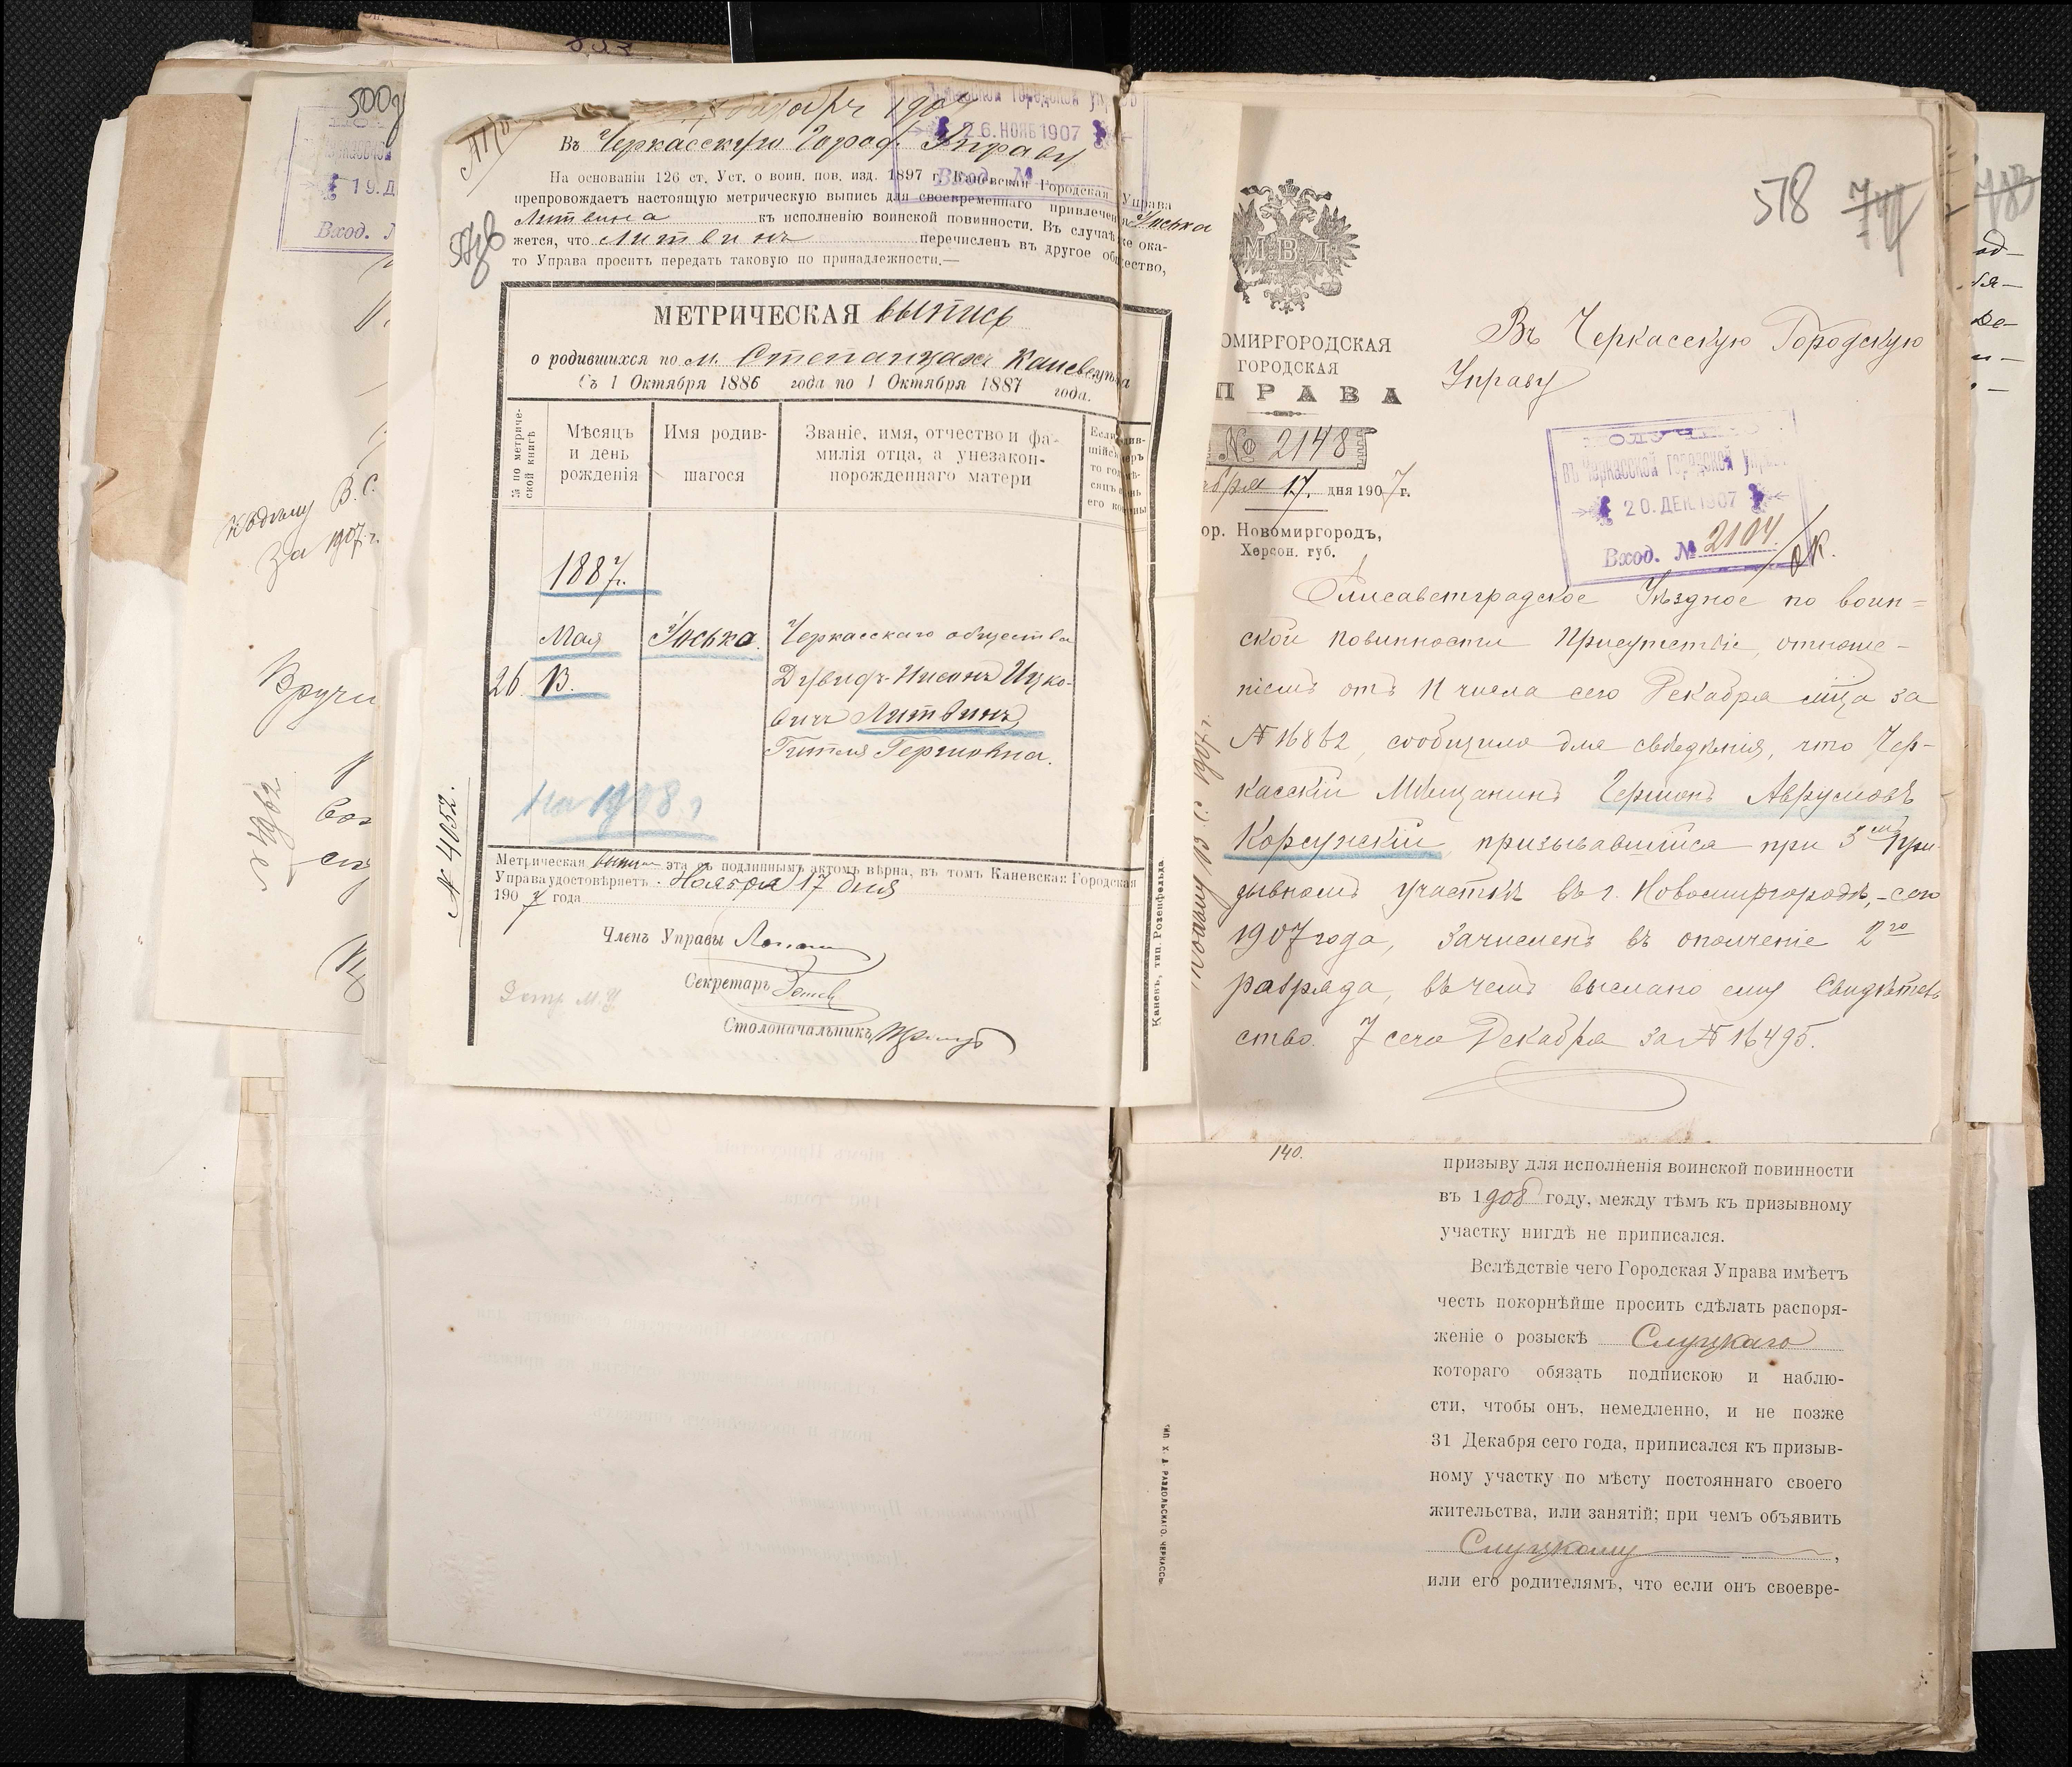 500
19. Д
Вход. №
В. С.
за 1907 г.
Вручи
№ 4962
1907
26. НОЯБ 1907
Вход. №
Въ Черкасскую Город. Управу
На основаніи 126 ст. Уст. о воин. пов. изд. 1897 г. Каневская Городская Управа
препровождаетъ настоящую метрическую выпись для своевременнаго привлеченія Иоська
Литвина къ исполненію воинской повинности. Въ случаѣ же ока-
жется, что Литвинъ перечисленъ въ другое общество,
то Управа проситъ передать таковую по принадлежности.—
МЕТРИЧЕСКАЯ выпись
о родившихся по м. Степанцахъ Каневск. уѣзда
Съ 1 Октября 1886 года по 1 Октября 1887 года.
№ по метриче-
ской книгѣ
Мѣсяцъ
и день
рожденія
Имя родив-
шагося
Званіе, имя, отчество и фа-
милія отца, а у незакон-
норожденнаго матери
1887 г.
Мая Иоська. Черкасскаго общества
26. 13. Дувидъ-Нисонъ Ицко-
вичъ Литвинъ,
Гитля Гершковна.
на 1908 г
№ 4052.
Метрическая выпись эта съ подлиннымъ актомъ вѣрна, въ томъ Каневская Городская
Управа удостовѣряетъ. Ноября 17 дня
1907 года
Членъ Управы
Секретарь
Столоначальникъ
Каневъ, тип. Розенфельда
518
М.В.Д.
ОМИРГОРОДСКАЯ
ГОРОДСКАЯ
ПРАВА
№ 2148
бря 17. дня 1907 г.
ор. Новомиргородъ,
Херсон. губ.
Въ Черкасскую Городскую
Управу
ПОЛУЧЕНО
въ Черкасской Городской Управѣ
20. ДЕК 1907
Вход. № 2104.
Елисаветградское Уѣздное по воин=
ской повинности Присутствіе, отноше-
ніемъ отъ 11 числа сего Декабря мѣца за
№ 16862, сообщило для свѣдѣнія, что Чер-
касскій Мѣщанинъ Гершонъ Аврумовъ
Корсунскій, призывавшійся при 3емъ При-
зывномъ участкѣ въ г. Новомиргородѣ,-сего
1907 года, зачисленъ въ ополченіе 2го
разряда, въ чемъ выслано ему Свидѣтель
ство 7 сего Декабря за № 16495.
140.
призыву для исполненія воинской повинности
въ 1908 году, между тѣмъ къ призывному
участку нигдѣ не приписался.
Вслѣдствіе чего Городская Управа имѣетъ
честь покорнѣйше просить сдѣлать распоря-
женіе о розыскѣ Слуцкаго
котораго обязать подпискою и наблю-
сти, чтобы онъ, немедленно, и не позже
31 Декабря сего года, приписался къ призыв-
ному участку по мѣсту постояннаго своего
жительства, или занятій; при чемъ объявить
Слуцкому,
или его родителямъ, что если онъ своевре-
ТИП. Х. Д. РАЗДОЛЬСКАГО, ЧЕРКАССЫ.